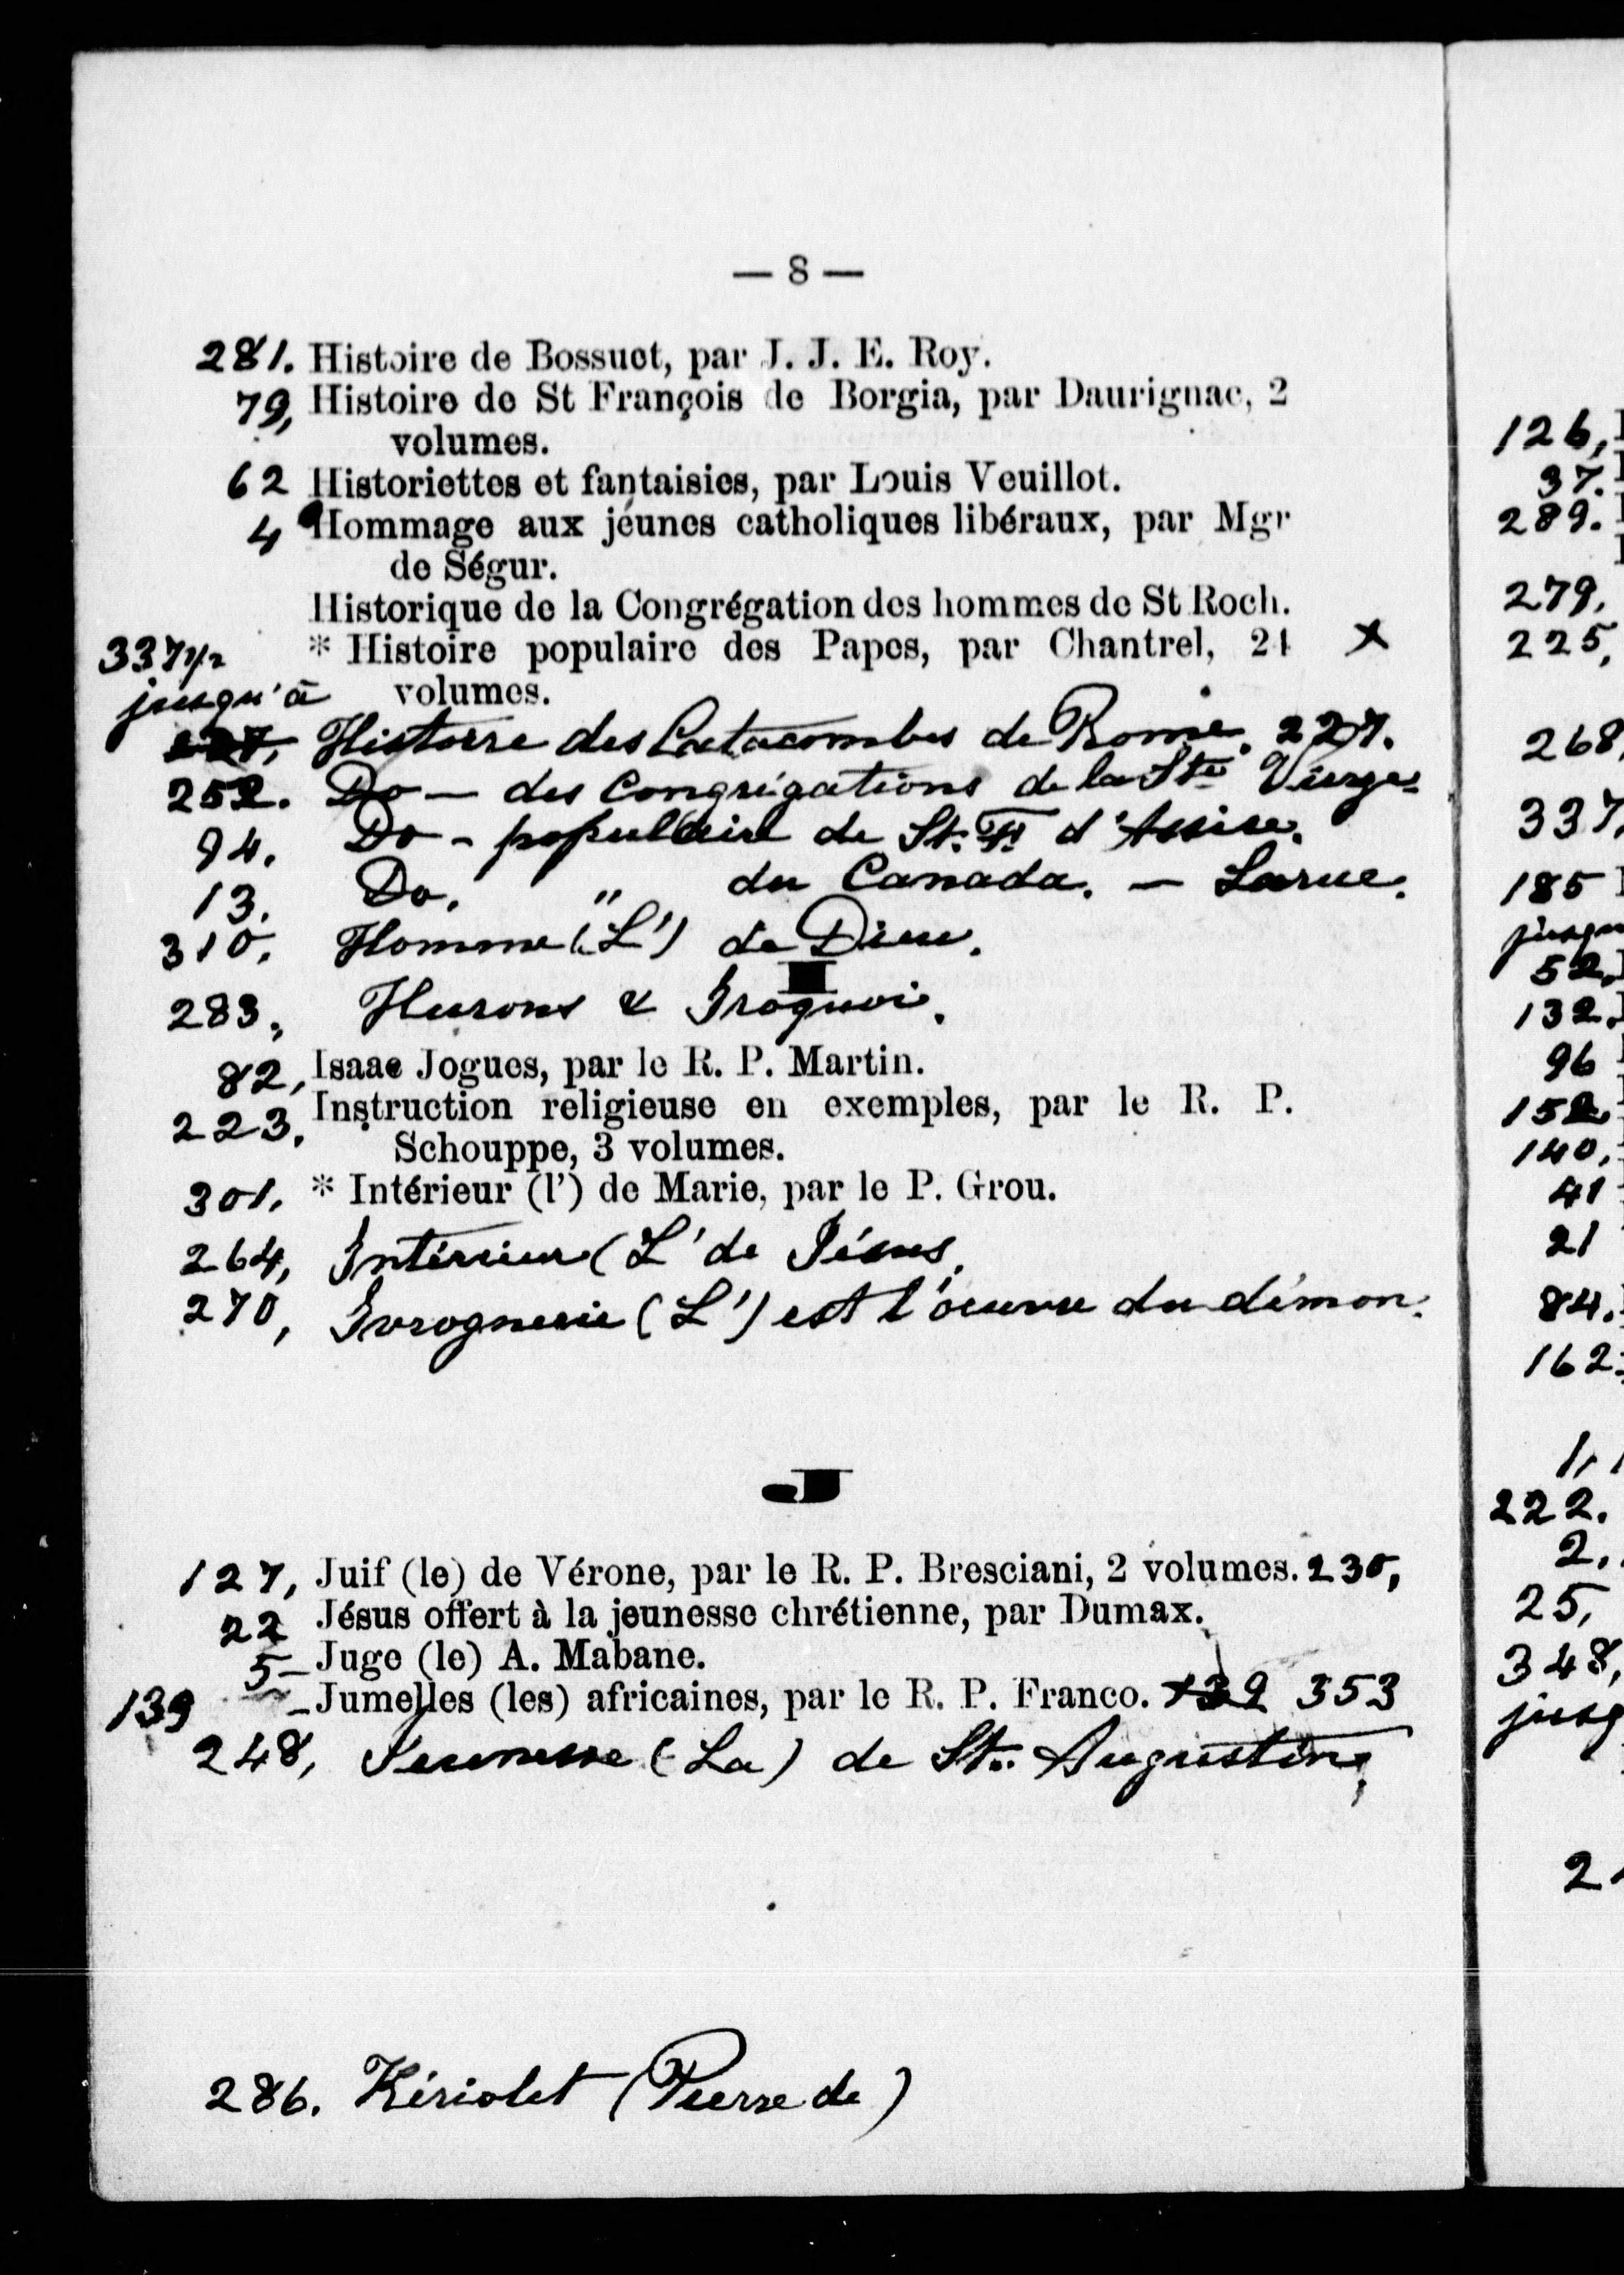 — 8 —
281. Histoire de Bossuet, par J. J. E. Roy.
79, Histoire de St François de Borgia, par Daurignac, 2
volumes.
62 Historiettes et fantaisies, par Louis Veuillot.
4 Hommage aux jeunes catholiques libéraux, par Mgr
de Ségur.
Historique de la Congrégation des hommes de St Roch.
337 1/2 * Histoire populaire des Papes, par Chantrel, 24 x
jusqu'à volumes.
227, Histoire des Catacombes de Rome. 227.
252. Do — des Congrégations de la Ste Vierge
94. Do - populaire de St. F. d'Assise.
13. Do. " du Canada. — Larue.
310. Homme (L') de Dieu.
I
283, Hurons & Iroquoi.
82, Isaac Jogues, par le R. P. Martin.
223. Instruction religieuse en exemples, par le R. P.
Schouppe, 3 volumes.
301. * Intérieur (l') de Marie, par le P. Grou.
264, Intérieur (L' de Jésus.
270, Ivrognerie (L') est l'oeuvre du démon.
J
127, Juif (le) de Vérone, par le R. P. Bresciani, 2 volumes. 230,
22 Jésus offert à la jeunesse chrétienne, par Dumax.
5 — Juge (le) A. Mabane.
139 — Jumelles (les) africaines, par le R. P. Franco. 139 353
248, Jeunesse (La) de St. Augustin,
286. Kériolet (Pierre de)
126,
37.
289.
279,
225,
268,
337,
185
52,
132.
96
152,
140,
41
21
84.
162
1,
222.
2,
25,
348,